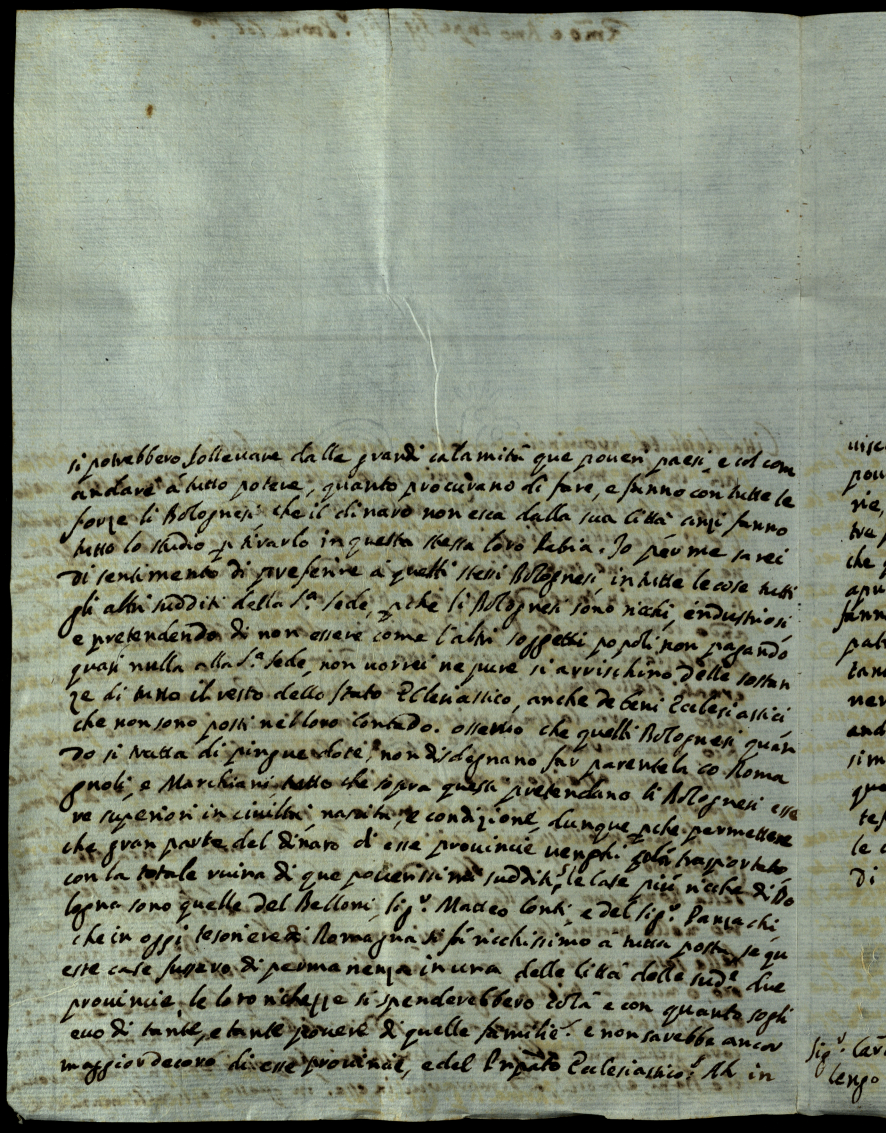 si potrebbero sollevare dalle grandi calamità que poueri paesi, e col com
andare à tutto potere, quanto procurano di fare, e fanno con tutte le
forze li Bolognesi che il dinaro non esca dalla sua Città anzi fanno
tutto lo studio p tirarlo in questa stessa loro Patria. Io per me sarei
Di sentimento di preferire à quelli stessi Bolognesi in tutte le cose tutti
gli altri sudditi della S.ª Sede, pche li Bolognesi sono ricchi, e industriosi
e pretendendo di non essere come l'altri soggetti popoli, non pagando
quasi nulla alla S.ª Sede, non uorrei ne pure si arrischino delle sostan
ze di tutto il resto dello Stato Ecclesiastico, anche de beni Ecclesiastici
che non sono posti nel loro Contado. osseruo che quelli Bolognesi quan
Do si tratta di pingue dote, non disdegnano far parentela co Roma
gnoli, e Marchiani tutto che sopra questi pretendano li Bolognesi esse
re superiori in ciuiltà, nascita, e condizione, dunque pche permettere
che gran parte del dinaro di esse prouincie uenghi colà trasportato
con la totale ruina di que pouerissimi sudditi, le case più ricche di Bo
logna sono quelle del Belloni, Sig.r Matteo Conti, e del Sig.r
che in oggi tesoriere di Romagna si fà ricchissimo à tutta posta, se qu
este case fussero di permanenza in una delle Città delle sud.e due
prouincie, le loro richezze si spenderebbero colà e con quanto sogli
euo di tante, e tante pouere di quelle famiglie. e non sarebbe ancor
maggior decoro di esse prouincie, e del Pnpato Ecclesiastico? Ah in
pou
rie,
tra
che
apu
fann
pat
tan
ner
and
sim
que
tes
le
Di
Sig.r Car
lengo